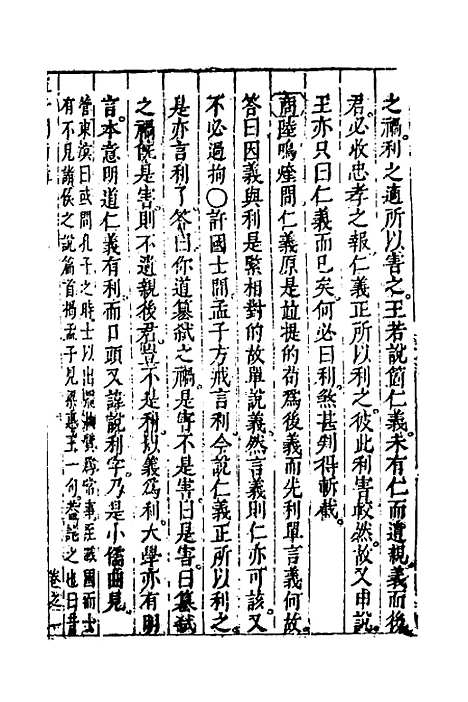 之禍利之適所以害之王若說箇仁義未有仁而遺親義而後
君必收忠孝之報仁義正所以利之彼此利害較然故又申說
王亦只曰仁義而已矣何必曰利煞甚判得斬截
商陸鳴塵問仁義原是並提的苟為後義而先利單言義何故
答曰因義與利是緊相對的故單說義然言義則仁亦可該又
不必過拘○許國士問孟子方戒言利今說仁義正所以利之
是亦言利了答曰你道篡弒之禍是害不是害曰是害曰篡弒
之禍既是害則不遺親後君豈不是利以義為利大學亦有明
言本意明道仁義有利而口頭又諱說利字乃是小儒曲見
管東溟曰或問孔子之時士以出疆為常事至戰國而士
有不見諸侯之說篇首揭孟子見梁惠王一句蓋記之也曰昔
卷之一